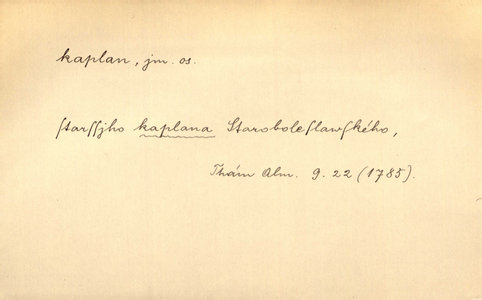 kaplan, jm. os.
ſtarſſjho kaplana Staroboleſlawſkého,
Thám Alm. 9. 22 (1785).